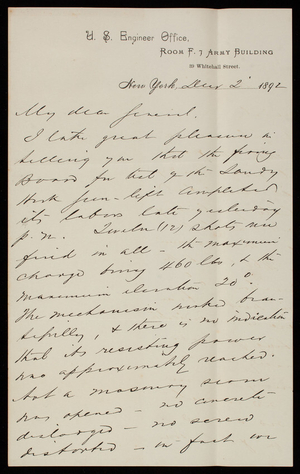 U. S. Engineer Office,
Room F. 7 Army Building
39 Whitehall Street.
New York, Decr 2d 1892
My dear General,
I take great pleasure in
telling you that the firing
Board for test of the Sandy
Hook Gun-lift completed
its labors late yesterday
p.m. Twelve (12) shots were
fired in all - the maximum
charge being 460 lbs, & the
maximum elevation 20°.
The mechanism worked beau-
tifully, & there is no indication
that its resisting power
was approximately reached.
Not a masonry seam
was opened - no concrete
dislodged - no screw
distorted - in fact we